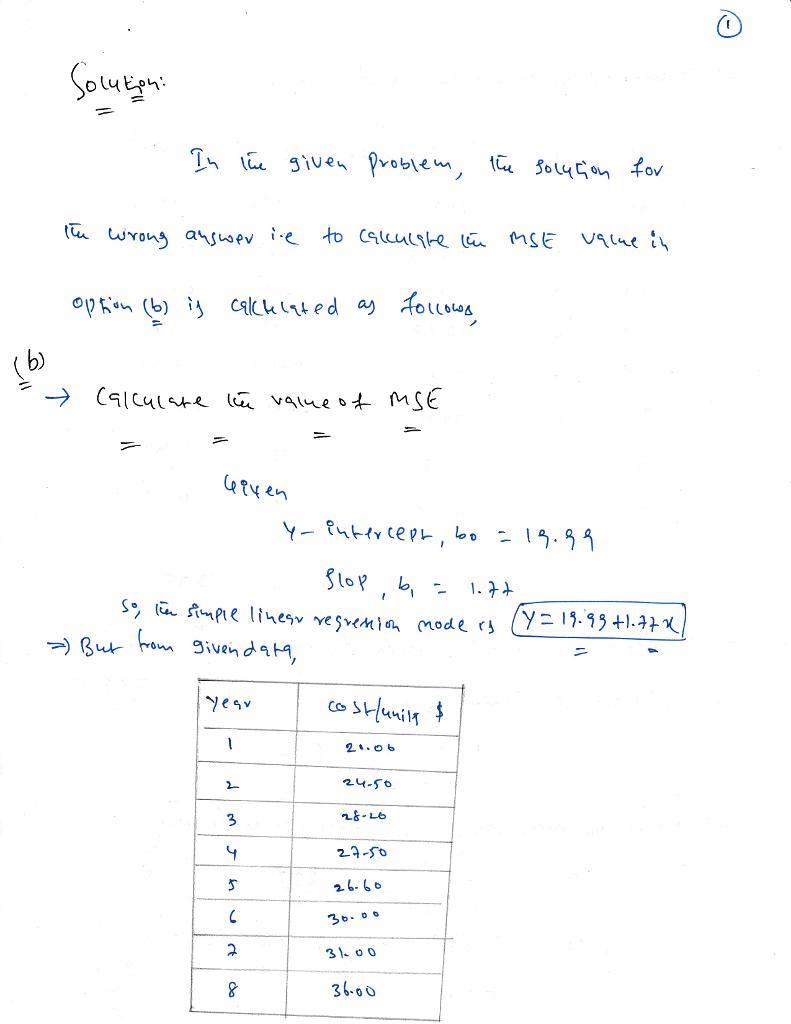 1
Solution:
In the given problem, the solution for
the wrong answer i.e to calculate the MSE value in
option (b) is calculated as follows,
(b)
→ Calculate the value of MSE
Given
Y- intercept, b0 = 19.99
Slop, b1 = 1.77
So, the simple linear regression mode is Y = 19.99 + 1.77x
⇒ But from given data,
year cost/unit $
1
2 24.50
3
4 27.50
5 26.60
6 30.00
7 31.00
8 36.00